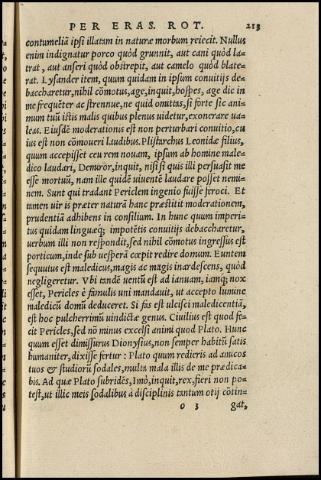 PER ERAS. ROT. 213
contumeliã ipsi illatam in naturæ morbum reiecit. Nullus
enim indignatur porco quòd grunnit, aut cani quòd la-
trat, aut anseri quòd obstrepit, aut camelo quòd blate-
rat. Lysander item, quum quidam in ipsum conuitijs de-
baccharetur, nihil cõmotus, age, inquit, hospes, age dic in
me frequẽter ac strennue, ne quid omittas, si forte sic ani-
mum tuũ istis malis quibus plenus uidetur, exonerare ua-
leas. Eiusdẽ moderationis est non perturbari conuitio, cu
ius est non cõmoueri laudibus. Plistarchus Leonidæ filius,
quum accepisset ceu rem nouam, ipsum ab homine male-
dico laudari, Demiror, inquit, nisi si quis illi persuasit me
esse mortuũ, nam ille quidẽ uiuentẽ laudare posset nemi-
nem. Sunt qui tradant Periclem ingenio fuisse feroci. Et
tamen uir is præter naturã hanc præstitit moderationem,
prudentiã adhibens in consilium. In hunc quum imperi-
tus quidam linguaq; impotẽtis conuitijs debaccharetur,
uerbum illi non respondit, sed nihil cõmotus ingressus est
porticum, inde sub uesperã cœpit redire domum. Euntem
sequutus est maledicus, magis ac magis inardescens, quòd
negligeretur. Vbi tandẽ uentũ est ad ianuam, iamq; nox
esset, Pericles è famulis uni mandauit, ut accepto lumine
maledicũ domũ deduceret. Si fas est ulcisci maledicentiã,
est hoc pulcherrimũ uindictæ genus. Ciuilius est quod fe-
cit Pericles, sed nõ minus excelsi animi quod Plato. Hunc
quum esset dimissurus Dionysius, non semper habitũ satis
humaniter, dixisse fertur : Plato quum redieris ad amicos
tuos & studiorũ sodales, multa mala illis de me prædica-
bis. Ad quæ Plato subridẽs, Imò, inquit, rex, fieri non po-
test, ut illic meis sodalibus à disciplinis tantum otij cõtin-
o 3 gat,